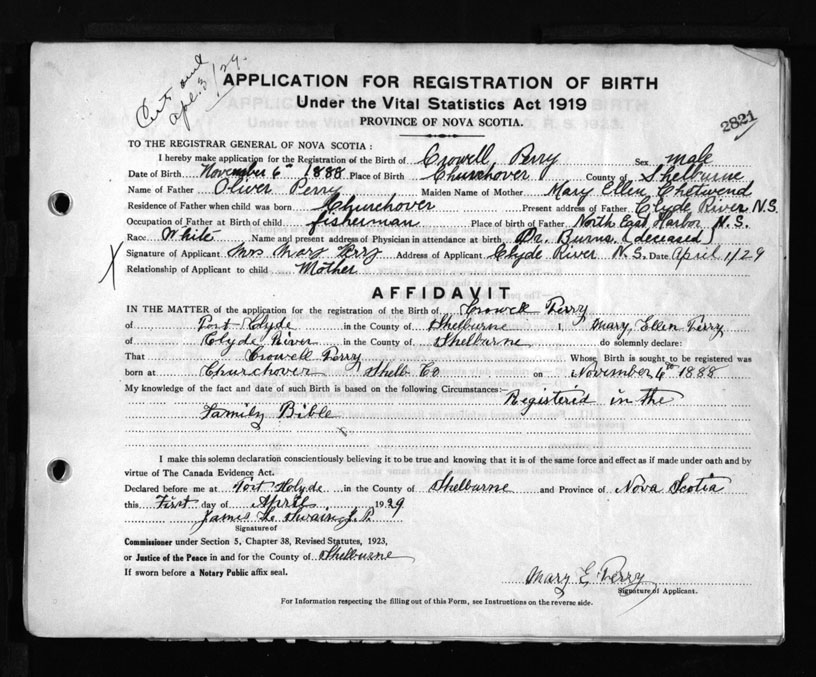 Cert sent
Apl. 3/29.
APPLICATION FOR REGISTRATION OF BIRTH
Under the Vital Statistics Act 1919
PROVINCE OF NOVA SCOTIA.
2821
TO THE REGISTRAR GENERAL OF NOVA SCOTIA :
I hereby make application for the Registration of the Birth of Crowell Perry Sex male
Date of Birth November 6th 1888 Place of Birth Churchover County of Shelburne
Name of Father Oliver Perry Maiden Name of Mother Mary Ellen Chetwend
Residence of Father when child was born Churchover Present address of Father Clyde River N.S.
Occupation of Father at Birth of child fisherman Place of birth of Father North East Harbor N.S.
Race White Name and present address of Physician in attendance at birth Dr. Burns (deceased)
X Signature of Applicant Mrs Mary Perry Address of Applicant Clyde River N.S. Date April 1/29
Relationship of Applicant to child Mother
AFFIDAVIT
IN THE MATTER of the application for the registration of the Birth of Crowell Perry
of Port Clyde in the County of Shelburne I, Mary Ellen Perry
of Clyde River in the County of Shelburne do solemnly declare:
That Crowell Perry Whose Birth is sought to be registered was
born at Churchover Shelb Co on November 6th 1888
My knowledge of the fact and date of such Birth is based on the following Circumstances:— Registered in the
Family Bible
I make this solemn declaration conscientiously believing it to be true and knowing that it is of the same force and effect as if made under oath and by
virtue of The Canada Evidence Act.
Declared before me at Port Clyde in the County of Shelburne and Province of Nova Scotia
this First day of April 1929
James L. Swaine J.P.
Signature of
Commissioner under Section 5, Chapter 38, Revised Statutes, 1923,
or Justice of the Peace in and for the County of Shelburne
If sworn before a Notary Public affix seal.
Mary E. Perry
Signature of Applicant.
For Information respecting the filling out of this Form, see Instructions on the reverse side.